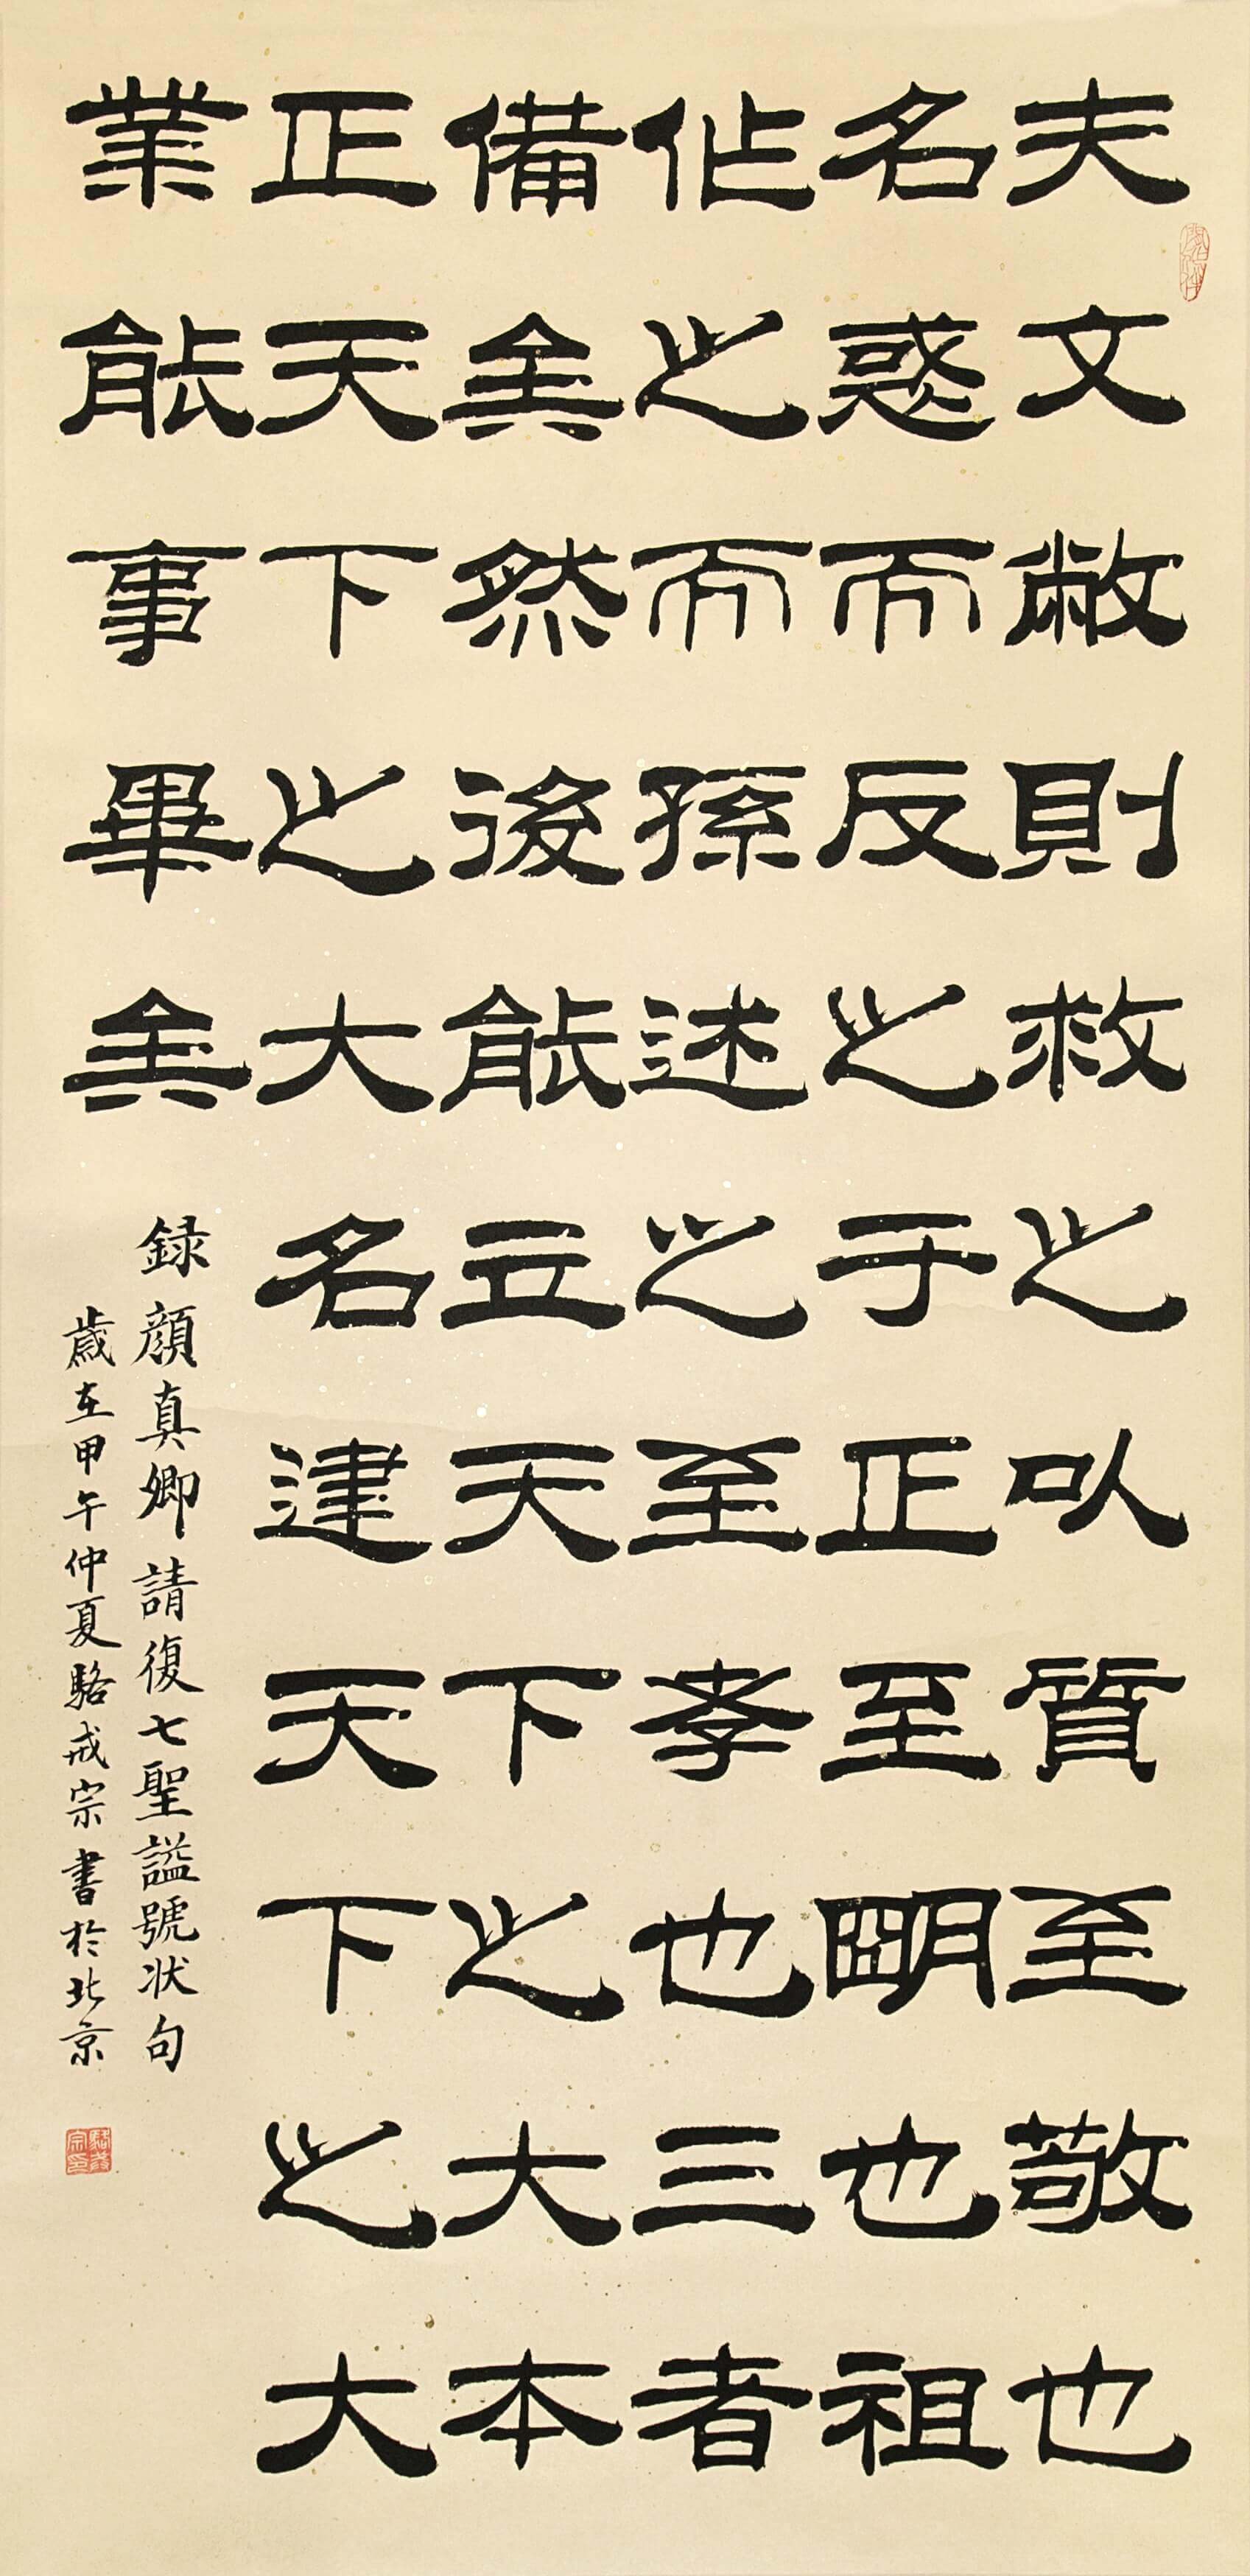 夫文敝則救之以質至敬也
名惑而反之于正至明也祖
作之而孫述之至孝也三者
備矣然後能立天下之大本
正天下之大名建天下之大
業能事畢矣
録顔真卿請復七聖謚號状句
歲在甲午仲夏駱戒宗書於北京